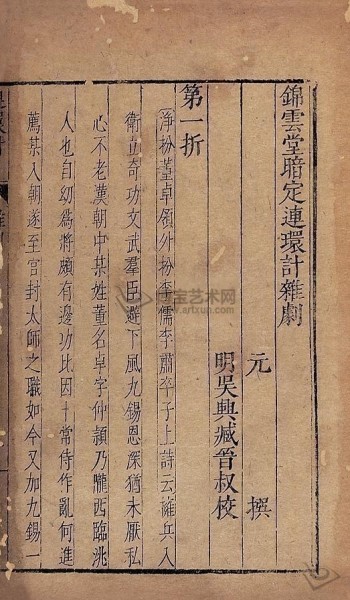 錦雲堂暗定連環計雜劇
元　　撰
明吳興臧晉叔校
第一折
淨扮董卓領外扮李儒李肅卒子上詩云擁兵入
衛立奇功文武羣臣避下風九錫恩深猶未厭私
心不老漢朝中某姓董名卓字仲潁乃隴西臨洮
人也自幼爲將頗有邊功比因十常侍作亂何進
薦某入朝遂至官封太師之職如今又加九錫一
行宝艺术网
www.artxun.com